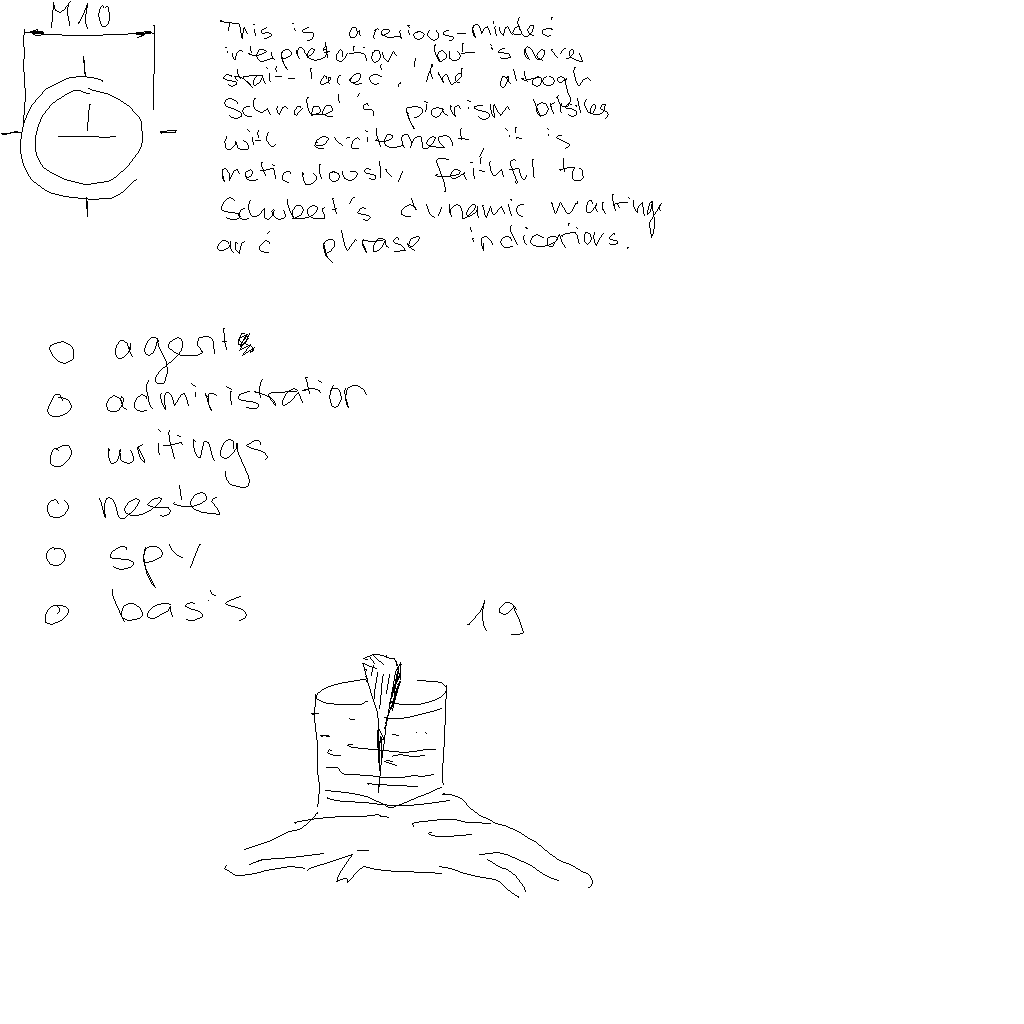 M10
This is a serious-minded
interpretation, but is never
strait-laced. And altough
Schnabel's pianism bristles
with excitement, it is
meticulously faithful to
Schubert's dynamic markings
and phrase indications.
agent
administration
writings
nester
spy
basis
19